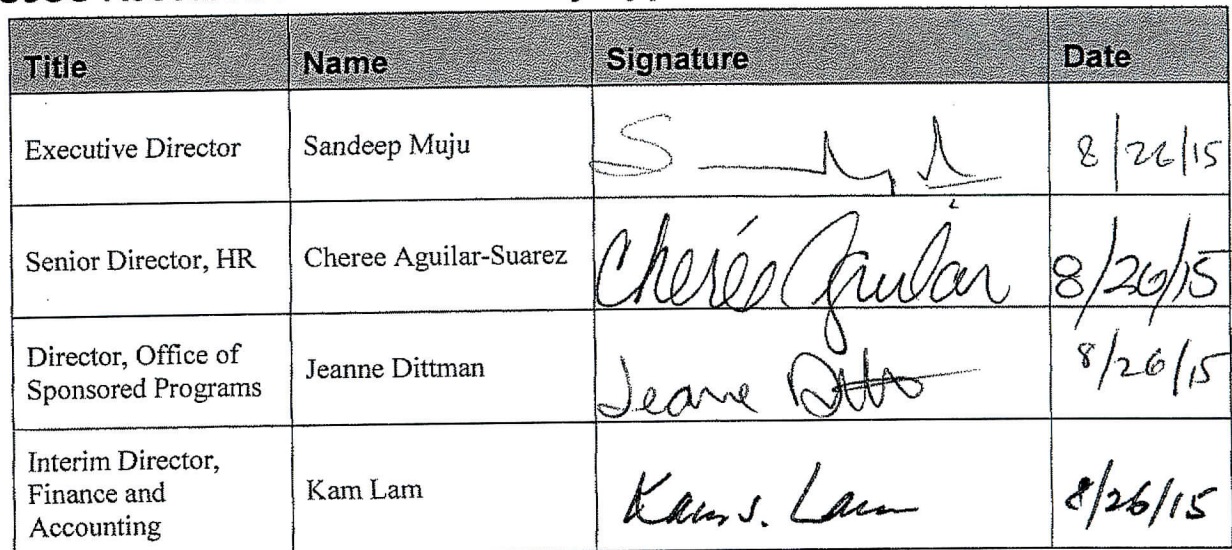 Title Name Signature Date
Executive Director Sandeep Muju 8/26/15
Senior Director, HR Cheree Aguilar-Suarez Cherée Aguilar 8/26/15
Director, Office of
Sponsored Programs Jeanne Dittman Jeanne Ditt 8/26/15
Interim Director,
Finance and
Accounting Kam Lam Kam S. Lam 8/26/15